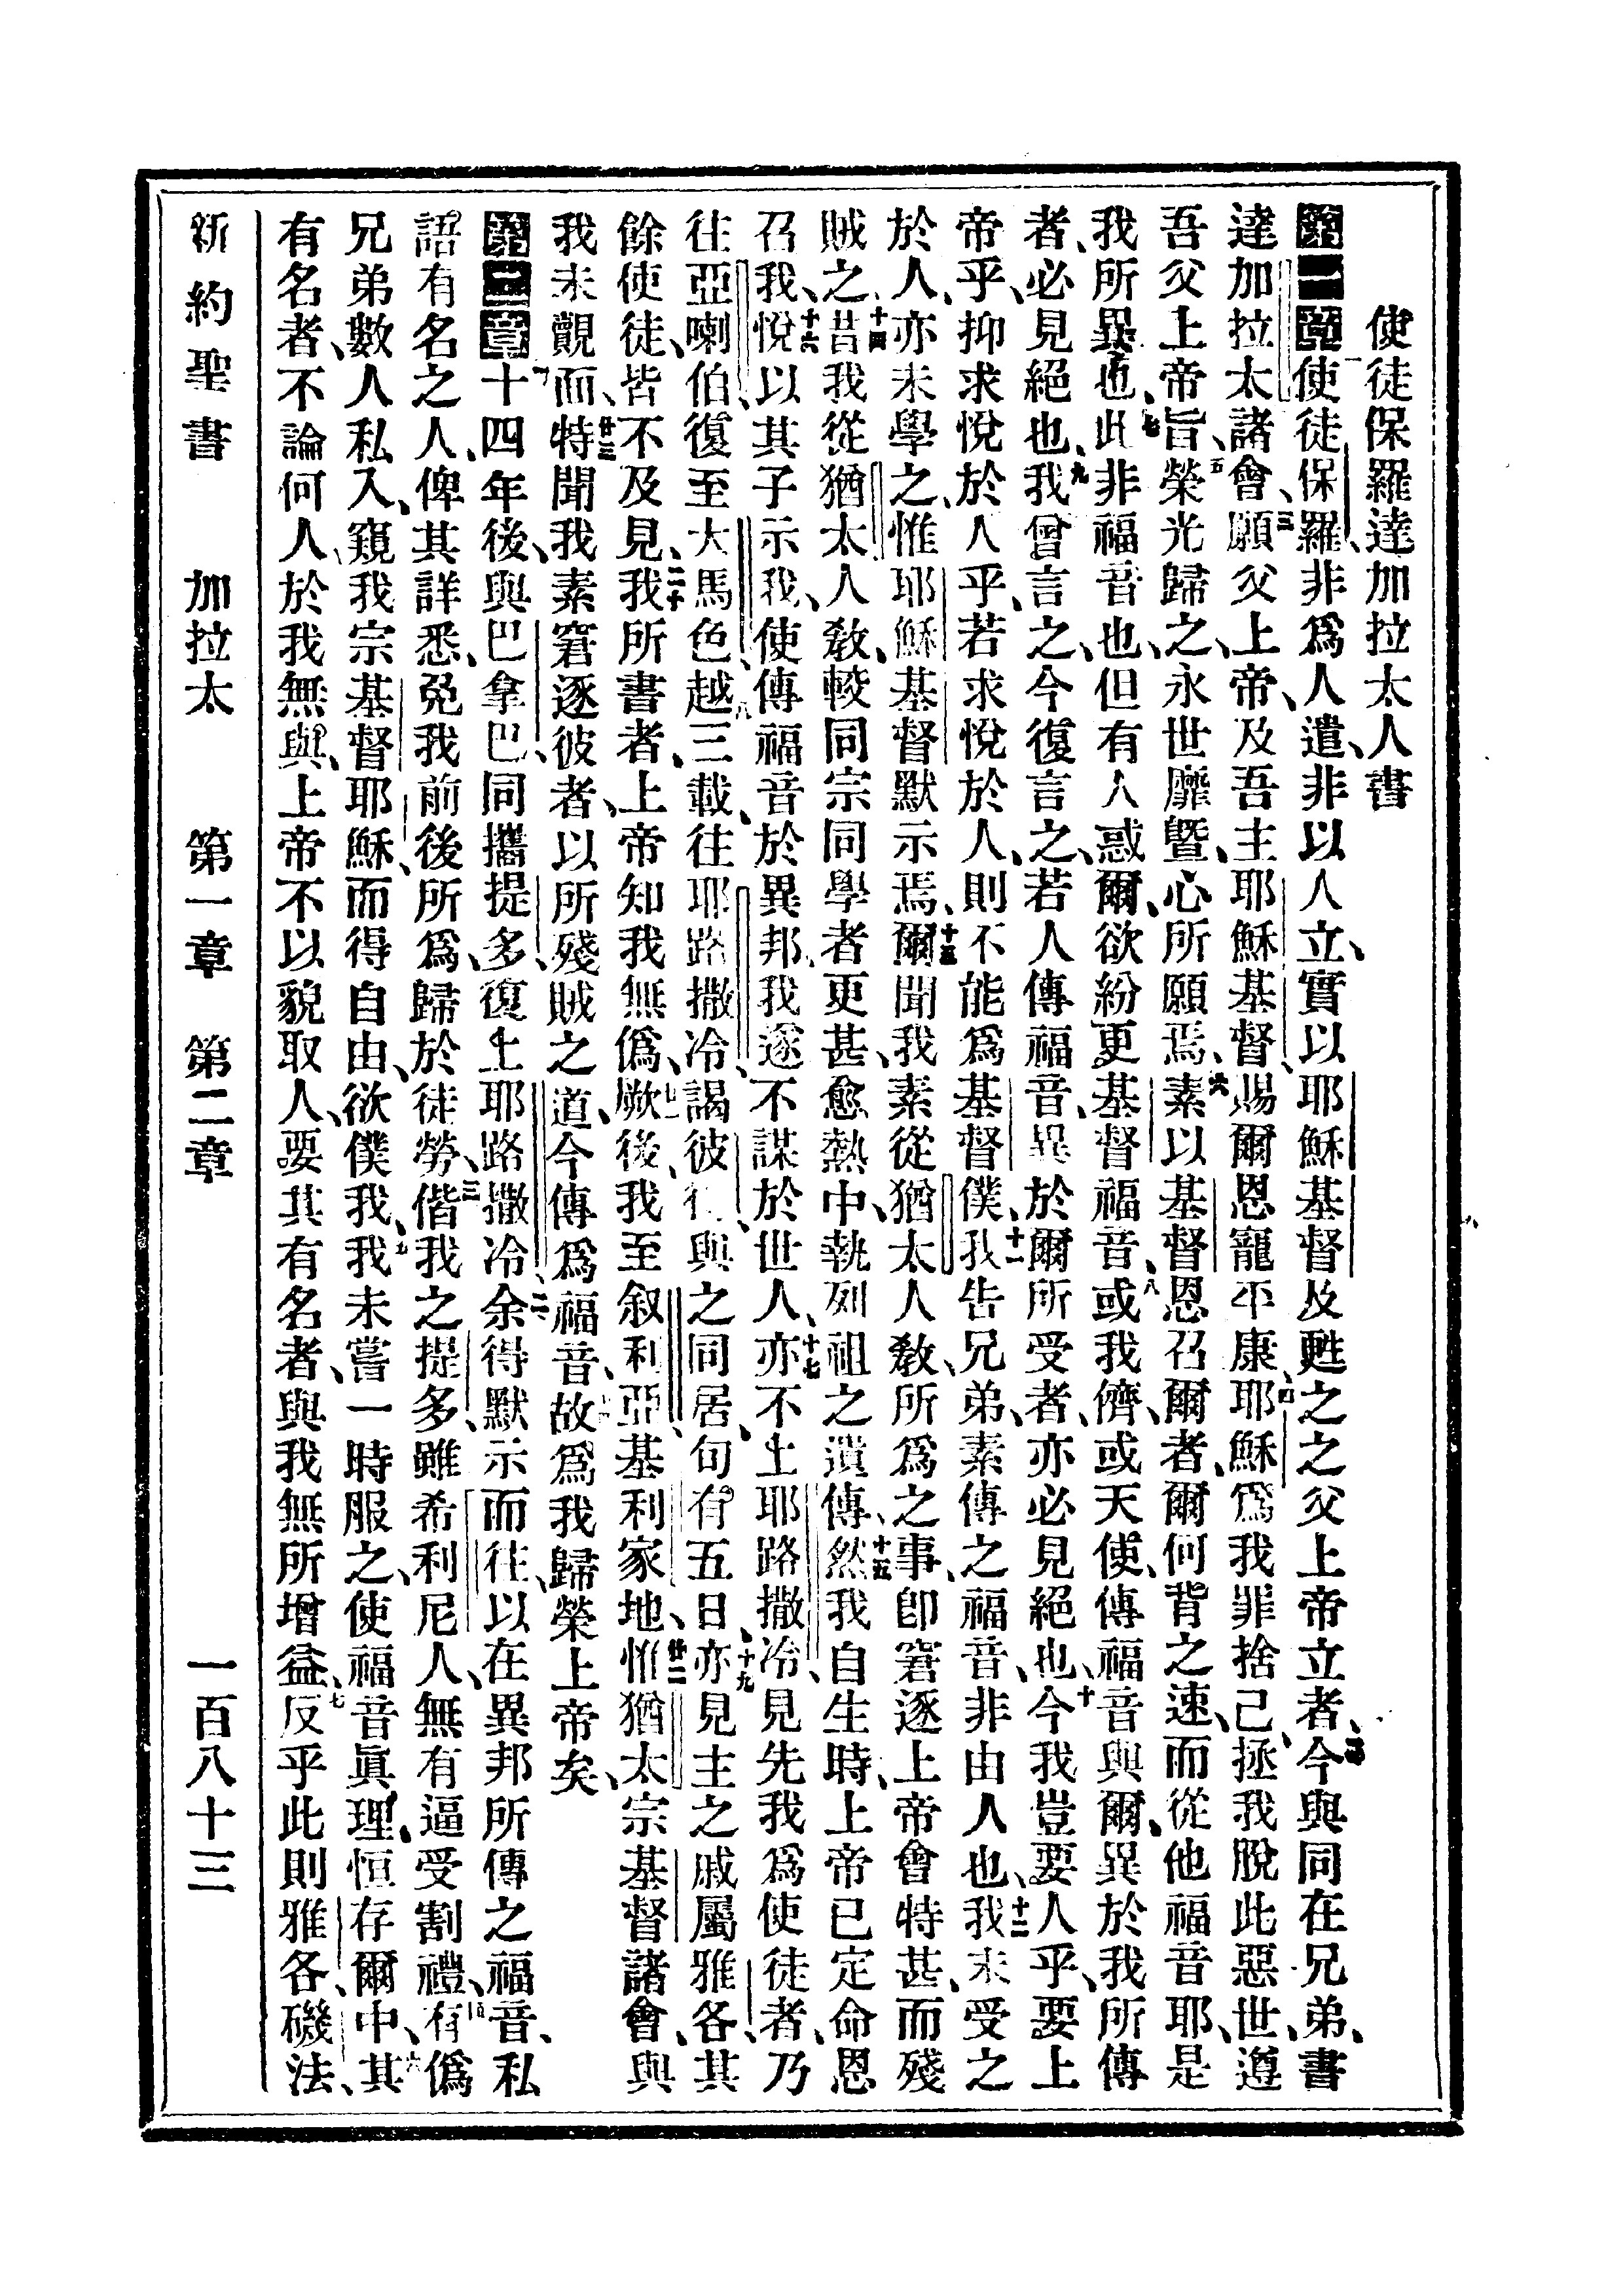 使徒保羅達加拉太人書
第一章一使徒保羅、非爲人遣、非以人立、實以耶穌基督及甦之之父上帝立者、二今與同在兄弟、書
達加拉太諸會、三願父上帝、及吾主耶穌基督、賜爾恩寵平康、四耶穌爲我罪捨己、拯我脫此惡世、遵
吾父上帝旨、五榮光歸之、永世靡曁、心所願焉、六素以基督恩召爾者、爾何背之速、而從他福音耶、是
我所異也、七此非福音也、但有人惑爾、欲紛更基督福音、八或我儕、或天使、傳福音與爾、異於我所傳
者、必見絕也、九我曾言之、今復言之、若人傳福音、異於爾所受者、亦必見絕也、十今我豈要人乎、要上
帝乎、抑求悅於人乎、若求悅於人、則不能爲基督僕、十一我告兄弟、素傳之福音、非由人也、十二我未受之
於人、亦未學之、惟耶穌基督默示焉、十三爾聞我素從猶太人敎、所爲之事、卽窘逐上帝會特甚、而殘
賊之、十四昔我從猶太人敎、較同宗同學者更甚、愈熱中、執列祖之遺傳、十五然我自生時、上帝已定命恩
召我、十六悅以其子示我、使傳福音於異邦、我遂不謀於世人、十七亦不上耶路撒冷、見先我爲使徒者、乃
往亞喇伯、復至大馬色、十八越三載、往耶路撒冷、謁彼得、與之同居、句有五日、十九亦見主之戚屬雅各、其
餘使徒、皆不及見、二十我所書者、上帝知我無僞、廿一厥後、我至叙利亞、基利家地、廿二惟猶太宗基督諸會、與
我未覿而、廿三特聞我素窘逐彼者、以所殘賊之道、今傳爲福音、廿四故爲我歸榮上帝矣、
第二章一十四年後、與巴拿巴、同攜提多、復上耶路撒冷、二余得默示而往、以在異邦所傳之福音、私
語有名之人、俾其詳悉、免我前後所爲、歸於徒勞、三偕我之提多、雖希利尼人、無有逼受割禮、四有僞
兄弟數人私入、窺我宗基督耶穌、而得自由、欲僕我、五我未嘗一時服之、使福音眞理、恒存爾中、六其
有名者、不論何人、於我無與、上帝不以貌取人、要其有名者、與我無所增益、七反乎此、則雅各、磯法、
新約聖書　加拉太　第一章　第二章　一百八十三